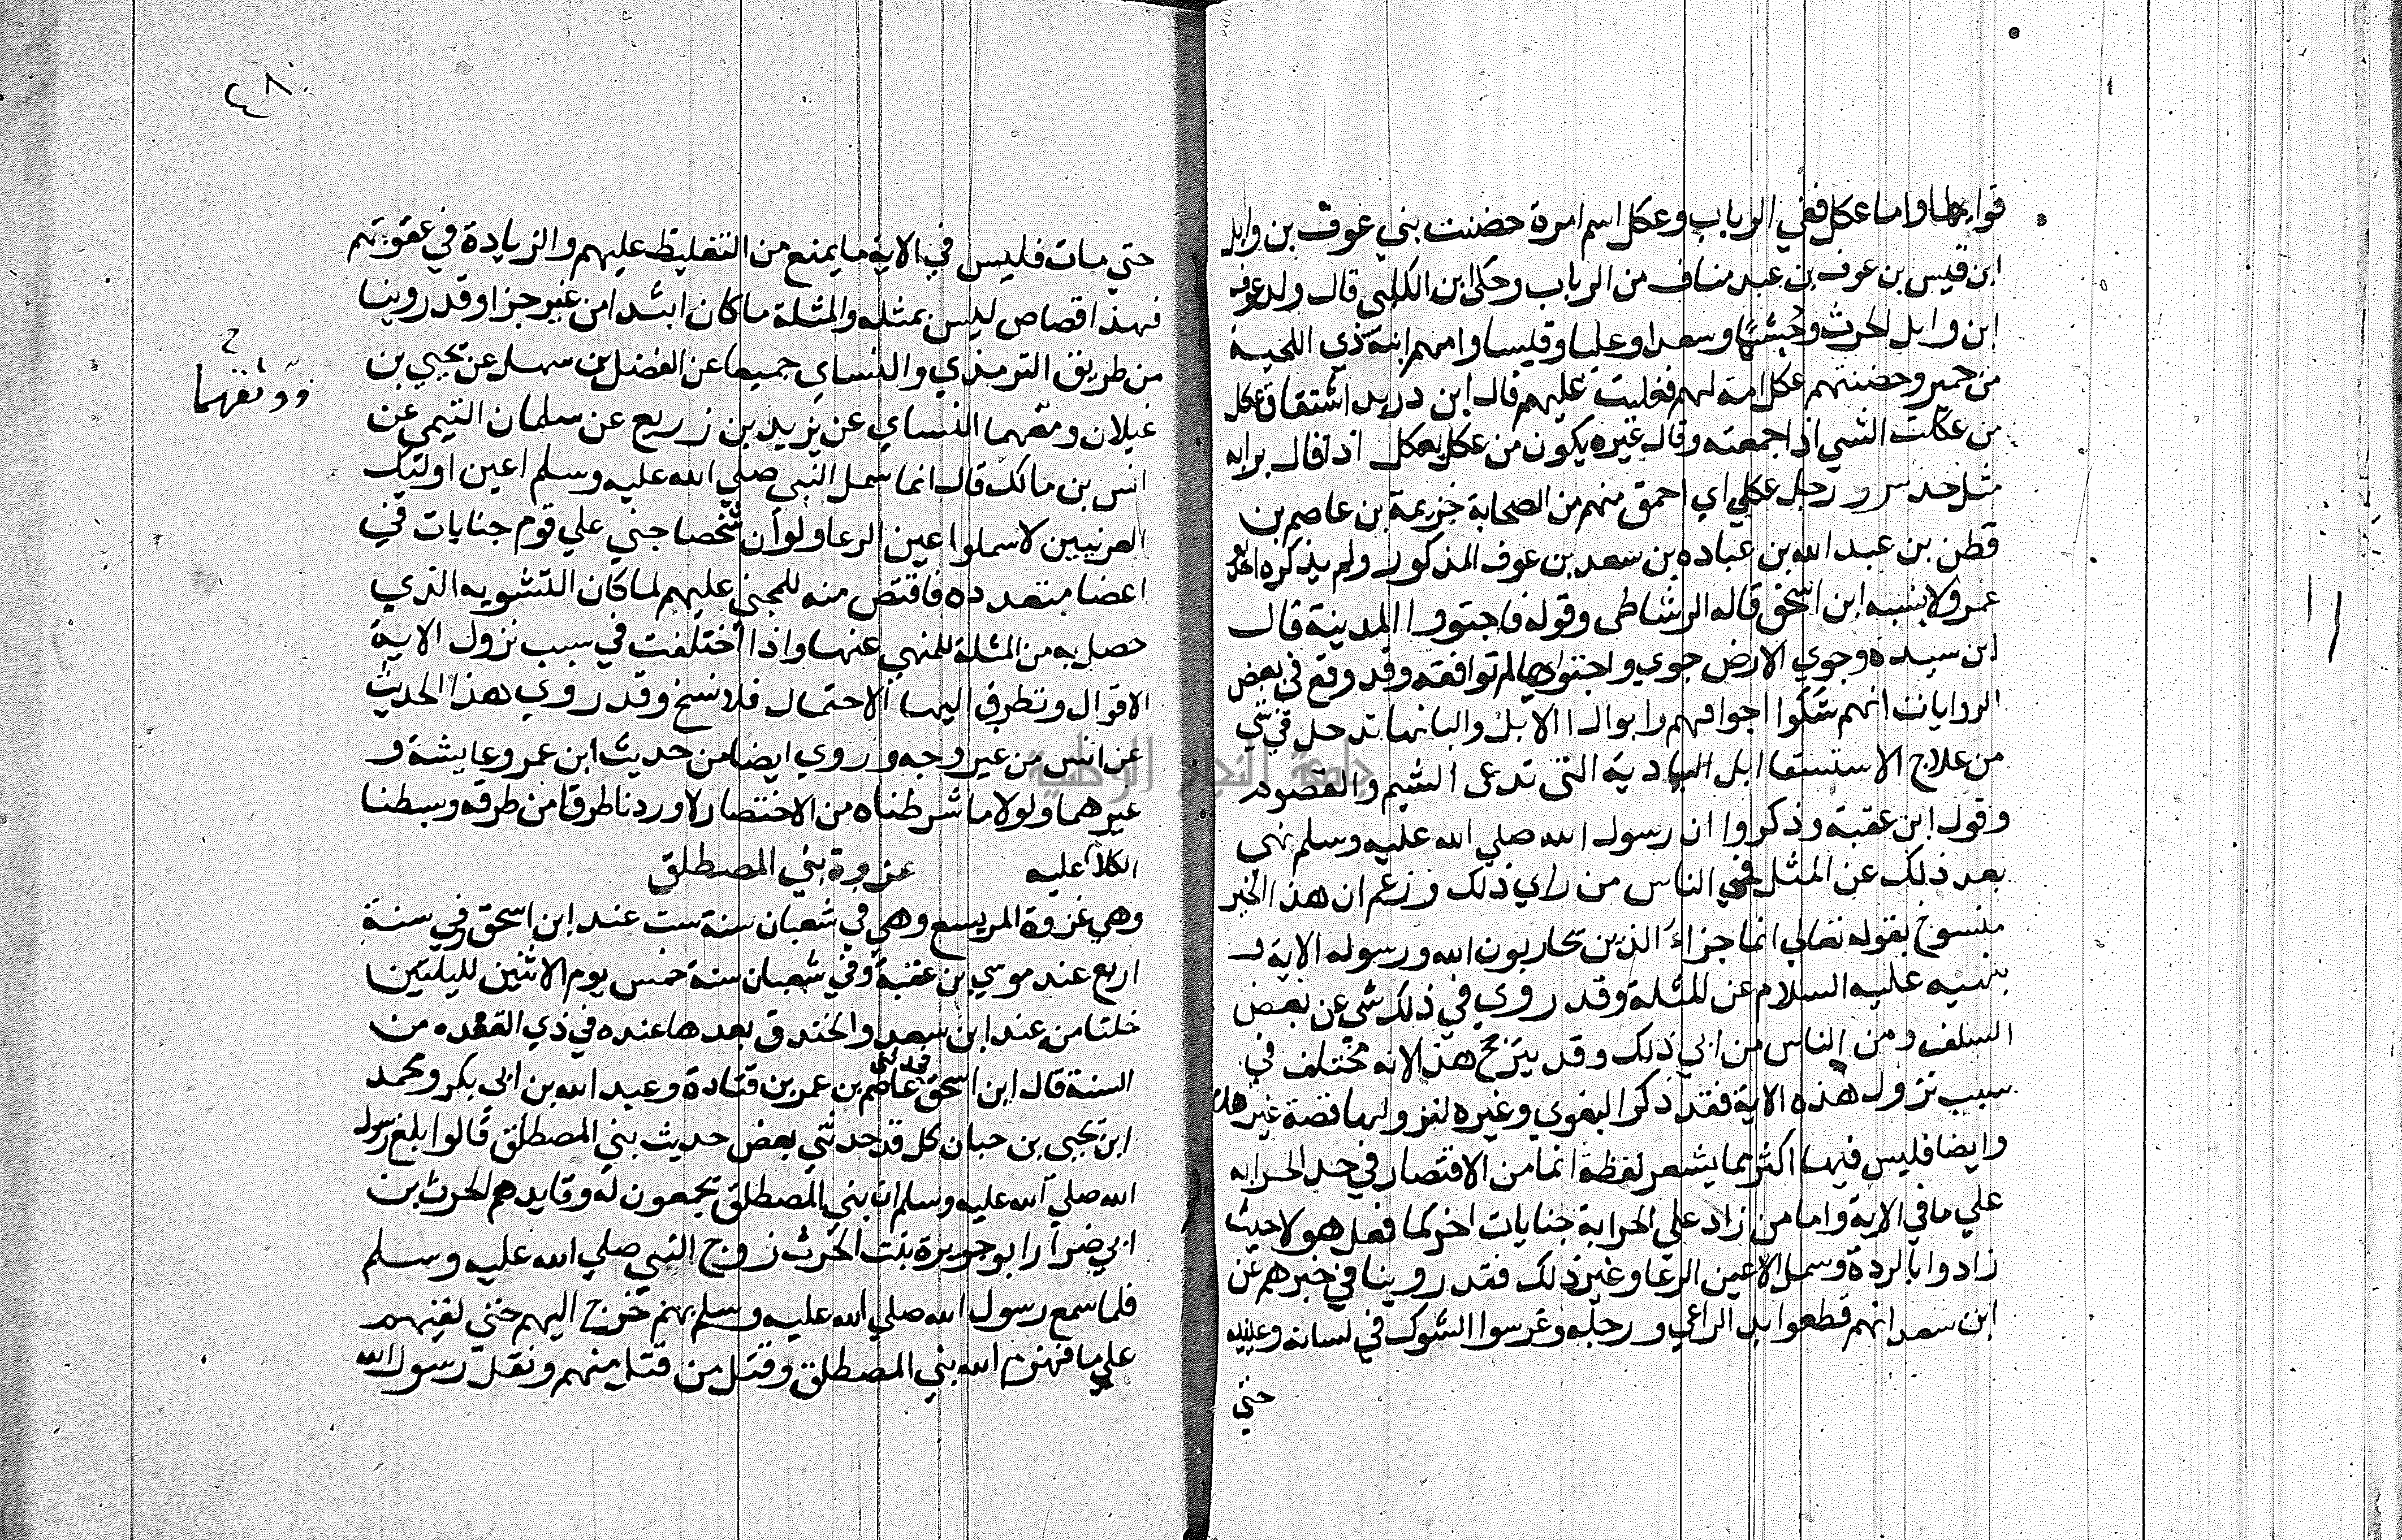 قوابها واما عكل ففي الرباب وعكل اسم امرة حضنت بني عوف بن وايل
ابن قيس بن عوف بن عبد مناف من الرباب وحكى ابن الكلبي قال ولد عوف
ابن وايل الحرث وجشما وسعدا وعليا وقيسا وامهم ابنة ذي اللحية
من حمير وحضنتهم عكل امة لهم فغلبت عليهم قال ابن دريد اشتقاق عكل
من عكلت الشي اذا جمعته وقال غيره يكون من عكل يعكل اذا قال برايه
مثل حدس ورجل عكلي اي احمق منهم من الصحابة خزيمة بن عاصم بن
قطن بن عبد الله بن عباده بن سعد بن عوف المذكور ولم يذكره ابو
عمر ولا نسبه ابن اسحق قاله الرشاطي وقوله فاجتووا المدينة قال
ابن سيده وجوي الارض جوي واجتواها لم توافقه وقد وقع في بعض
الروايات انهم شكوا اجوافهم وابوال الابل والبانها تدخل في شي
من علاج الاستسقا ابل البادية التي ترعى الشيح والقصوم
وقول ابن عقبة وذكروا ان رسول الله صلي الله عليه وسلم نهي
بعد ذلك عن المثل فمي الناس من راي ذلك وزعم ان هذا الخبر
منسوخ بقوله تعالي انما جزاء الذين يحاربون الله ورسوله الاية و
بنهيه عليه السلام عن المثلة وقد روي في ذلك شي عن بعض
السلف ومن الناس من ابي ذلك وقد يترجح هذا لانه مختلف في
سبب نزول هذه الاية فقد ذكر البغوي وغيره لنزولها قصة غير هذه
وايضا فليس فيها اكثر مما يشعر لفظة انما من الاقتصار في حد الحرابه
علي ما في الاية واما من زاد علي الحرابة جنايات اخر كما فعل هولا حيث
زادوا بالردة وسمل الاعين الرعا وغير ذلك فقد روينا في خبرهم عن
ابن سعد انهم قطعوا يد الراعي ورجله وغرسوا الشوك في لسانه وعينيه
حتي
٤٨
حتي مات فليس في الاية ما يمنع من التغليظ عليهم والزيادة في عقوبتهم
فهذا قصاص ليس بمثله والمثلة ما كان ابتدا من غير جزا وقد روينا
من طريق الترمذي والنساي جميعا عن الفضل بن سهل عن يحيي بن
غيلان وثقهما النساي عن يزيد بن زريع عن سلمان التيمي عن
ووثقهما
انس بن مالك قال انما سمل النبي صلي الله عليه وسلم اعين اوليك
العرنيين لاسملوا اعين الرعا ولو أن شخصا جني علي قوم جنايات في
اعضا متعدده فاقتص منه للمجني عليهم لما كان التشويه الذي
حصل به من المثلة المنهي عنها واذا اختلفت في سبب نزول الاية
الاقوال وتطرق اليها الاحتمال فلا نسخ وقد روي هذا الحديث
عن انس من غير وجه وروي ايضا من حديث ابن عمر وعايشة و
غيرهما ولولا ما شرطناه من الاختصار لاوردنا طرقا من طرقه وبسطنا
الكلام عليه غزوة بني المصطلق
وهي غزوة المريسيع وهي في شعبان سنة ست عند ابن اسحق وفي سنة
اربع عند موسي بن عقبة وفي شعبان سنة خمس يوم الاثنين لليلتين
خلتا من عند ابن سعد والخندق بعدها عنده في ذي القعده من
السنة قال ابن اسحق فحدثني عاصم بن عمر بن قتادة وعبد الله بن ابي بكر ومحمد
ابن يحيى بن حبان كل قد حدثني بعض حديث بني المصطلق قالوا بلغ رسول
الله صلي الله عليه وسلم ان بني المصطلق يجمعون له وقايدهم الحرث بن
ابي ضرار ابو جويرة بنت الحرث زوج النبي صلي الله عليه وسلم
فلما سمع رسول الله صلي الله عليه وسلم بهم خرج اليهم حتي لقيهم
علي ما فهزم الله بني المصطلق وقتل من قتل منهم ونفل رسول الله
جامعة النجاح الوطنية